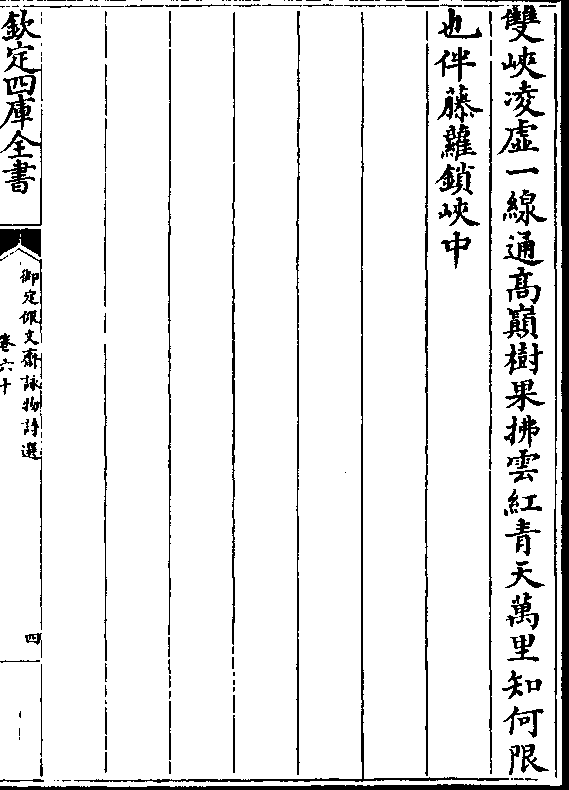 雙峽凌虛一線通高巔樹果拂雲紅青天萬里知何限
也伴藤蘿鎖峽中
欽定四庫全書
御定佩文齋詠物詩選
卷六十
四